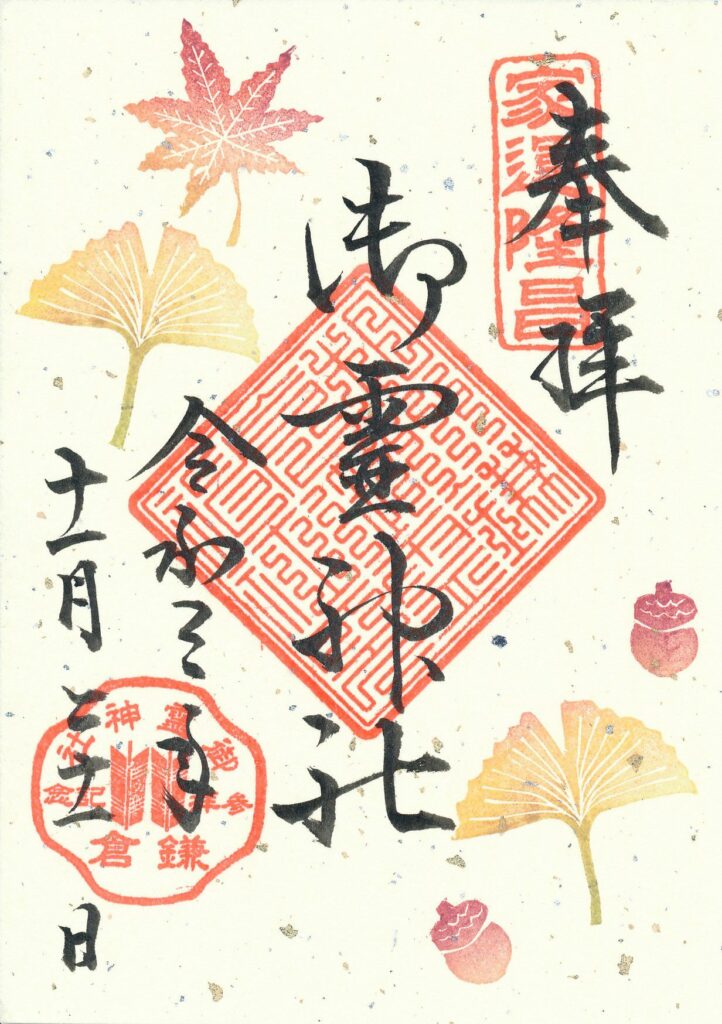 奉拝
家運隆昌
御霊神社
令和三年
十一月二十一日
御霊神社
参拝記念
鎌倉